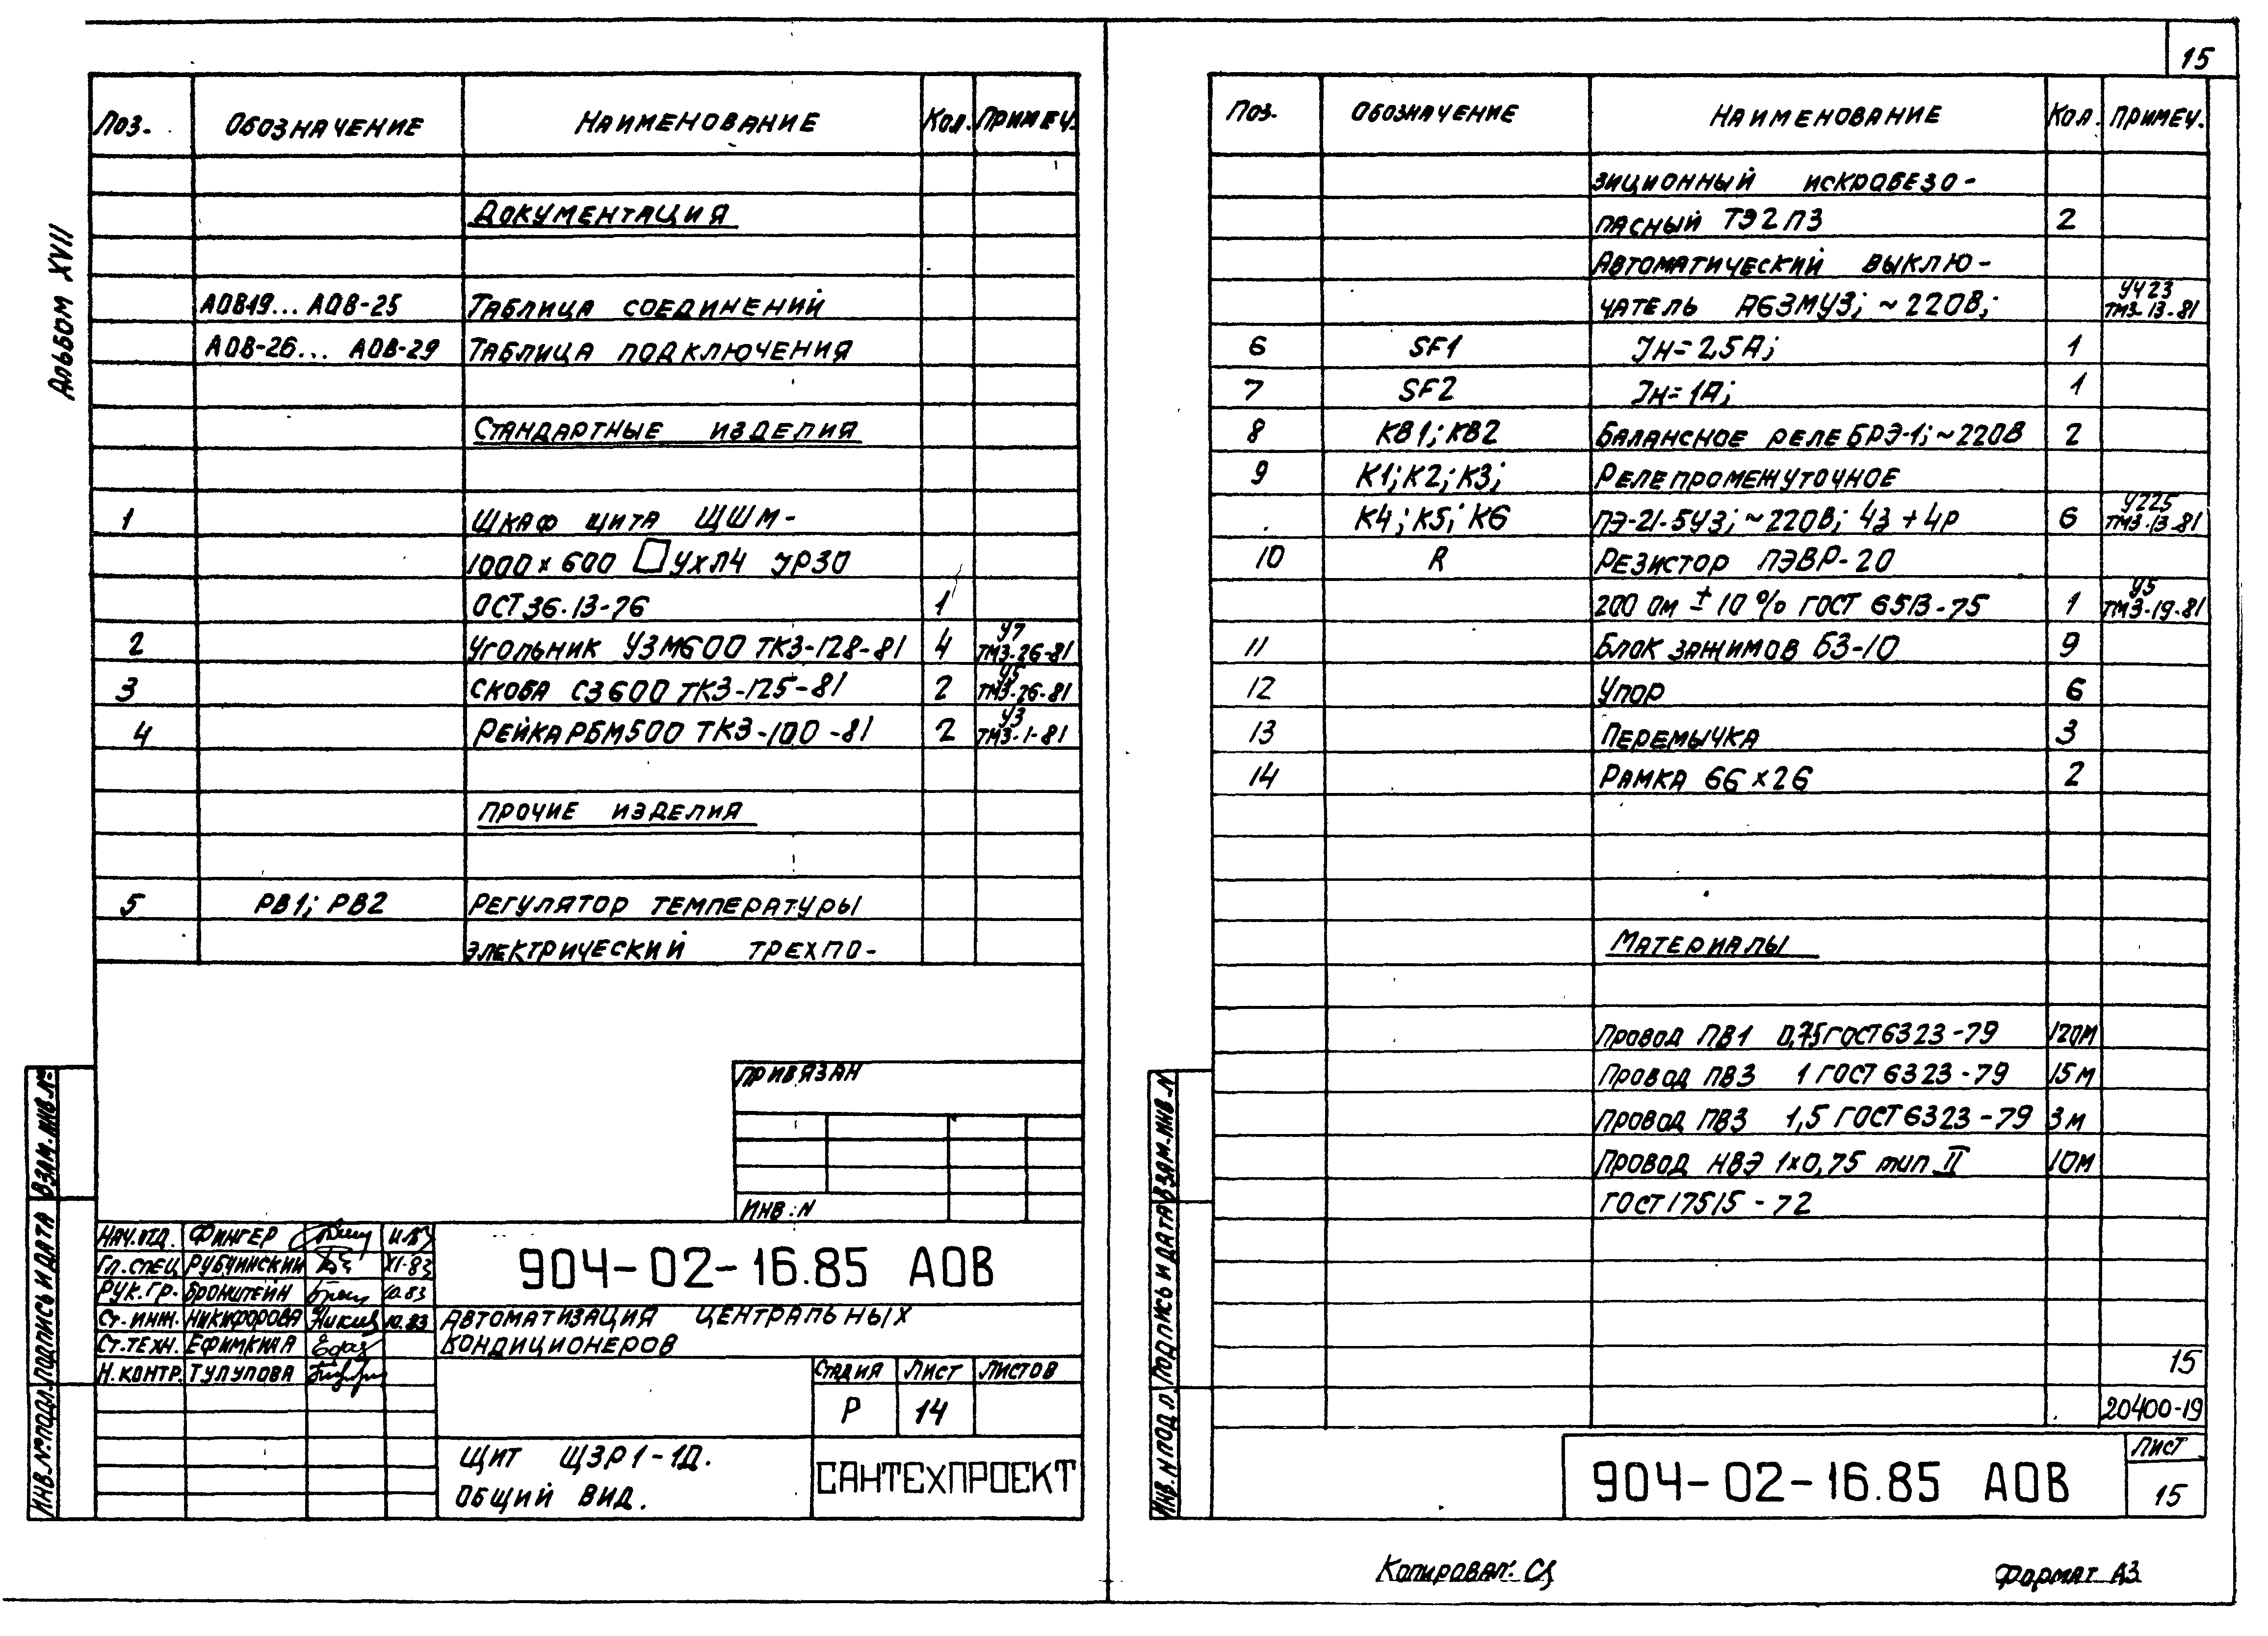 15
Альбом XVII
Поз. Обозначение Наименование Кол. Примеч.
Документация
АОВ19... АОВ-25 Таблица соединений
АОВ-26... АОВ-29 Таблица подключения
Стандартные изделия
1 Шкаф щита ЩШМ-
1000×600 УХЛ4 УР30
ОСТ 36.13-76 1
2 Угольник УЗМ600 ТКЗ-128-81 4 У7 ТМЗ-26-81
3 Скоба СЗ600 ТКЗ-125-81 2 У5 ТМЗ-26-81
4 Рейка РБМ500 ТКЗ-100-81 2 У3 ТМЗ-1-81
Прочие изделия
5 РВ1; РВ2 Регулятор температуры
электрический трехпо-
Привязан
Инв. N
Нач. отд. Фингер
Гл. спец Рубчинский XI-83
Рук. гр. Бронштейн 10.83
Ст. инж. Никифорова 10.83
Ст. техн. Ефимкина
Н. контр. Тулупова
904-02-16.85 АОВ
Автоматизация центральных
кондиционеров
Стадия Лист Листов
Р 14
Щит ЩЗР1-1Д.
Общий вид.
САНТЕХПРОЕКТ
Инв. № подл. Подпись и дата Взам. инв. №
Поз. Обозначение Наименование Кол. Примеч.
зиционный искробезо-
пасный ТЭ2П3 2
Автоматический выклю-
чатель А63МУ3; ~220В; УЧ23 ТМЗ-13-81
6 SF1 Iн=2,5А; 1
7 SF2 Iн=1А; 1
8 КВ1; КВ2 Балансное реле БРЭ-1; ~220В 2
9 К1; К2; К3; Реле промежуточное
К4; К5; К6 ПЭ-21-5У3; ~220В; 4з + 4р 6 У225 ТМЗ-13-81
10 R Резистор ПЭВР-20
200 Ом ± 10 % ГОСТ 6513-75 1 У5 ТМЗ-19-81
11 Блок зажимов БЗ-10 9
12 Упор 6
13 Перемычка 3
14 Рамка 66×26 2
Материалы
Провод ПВ1 0,75 ГОСТ 6323-79 120м
Провод ПВ3 1 ГОСТ 6323-79 15м
Провод ПВ3 1,5 ГОСТ 6323-79 3м
Провод НВЭ 1×0,75 тип II 10м
ГОСТ 17515-72
15
20400-19
904-02-16.85 АОВ
Лист
15
Инв. N подл Подпись и дата Взам. инв. N
Копировал:
Формат А3